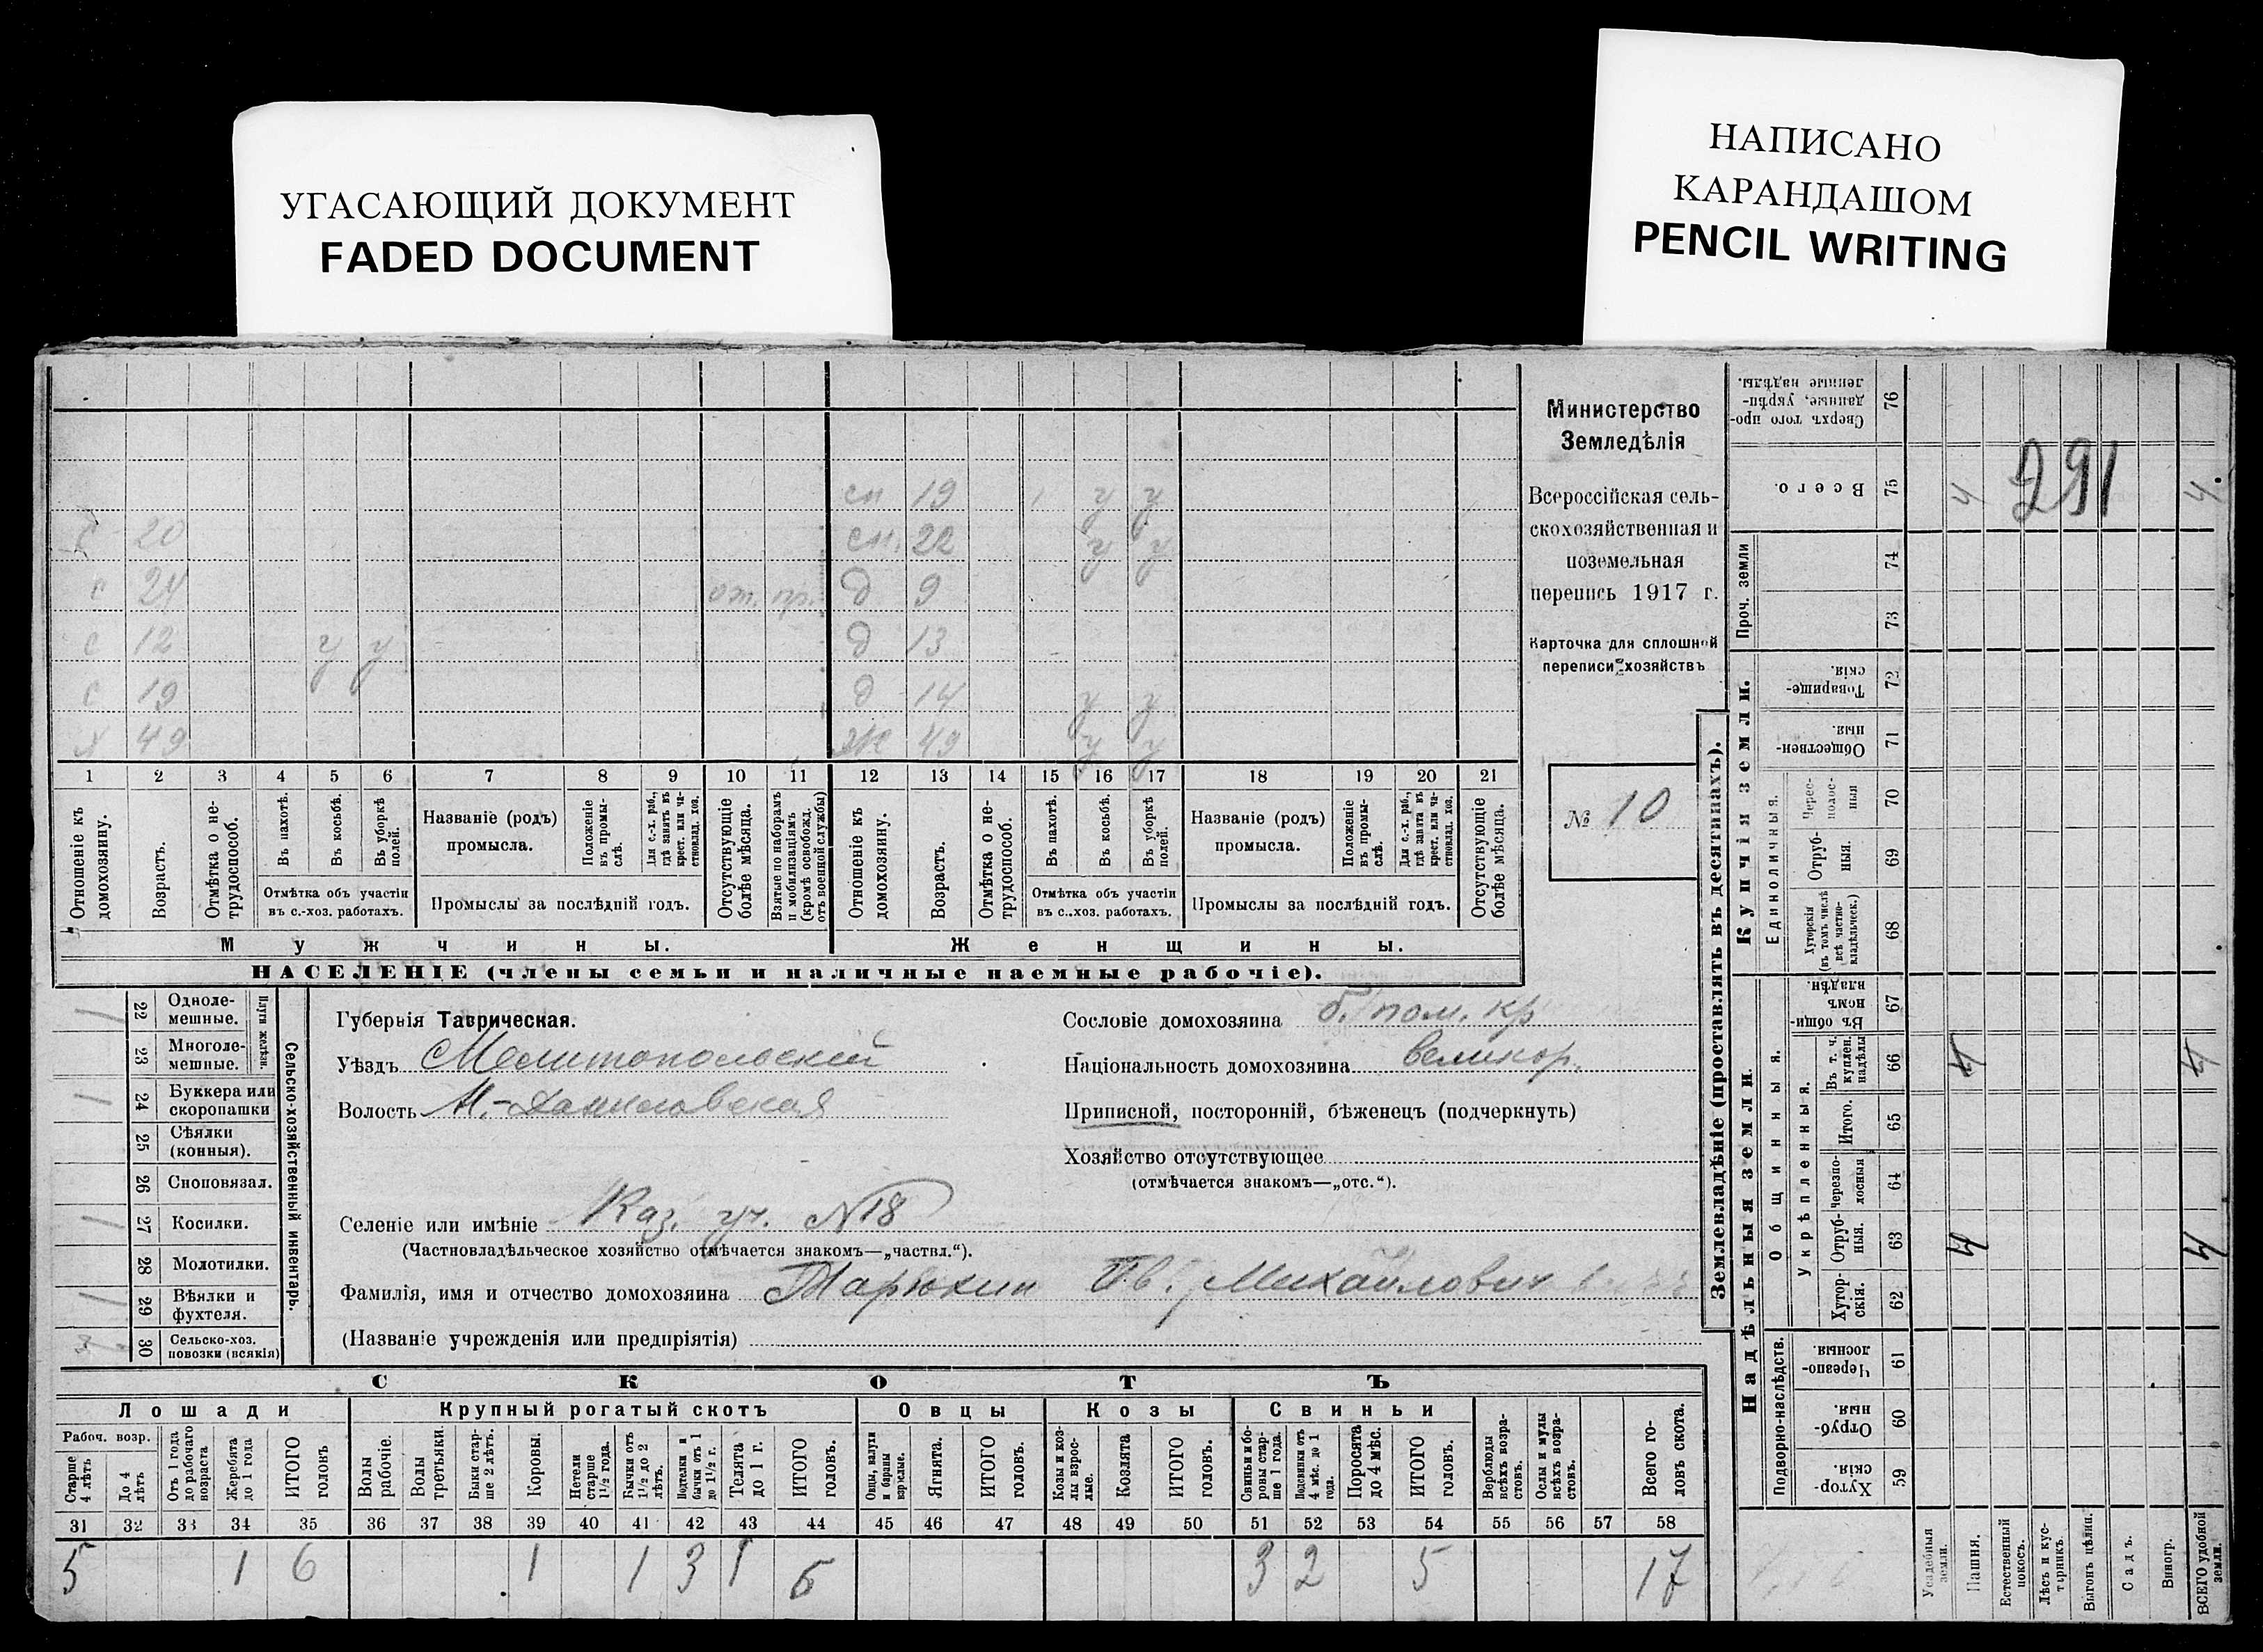 УГАСАЮЩИЙ ДОКУМЕНТ
FADED DOCUMENT
НАПИСАНО
КАРАНДАШОМ
PENCIL WRITING
сн 19 у у
с 20 сн. 22 у у
с 24 от. пр. д 9
с 12 у у д 13
с 19 д 14 у у
х 49 ж 49 у у
1 2 3 4 5 6 7 8 9 10 11 12 13 14 15 16 17 18 19 20 21
Отношеніе къ домохозяину.
Возрастъ.
Отмѣтка о нетрудоспособ.
Въ пахотѣ.
Въ косьбѣ.
Въ уборкѣ полей.
Отмѣтка объ участіи
въ с.-хоз. работахъ.
Названіе (родъ)
промысла.
Положеніе въ промыслѣ.
Для с.-х. раб., гдѣ занятъ въ крест. или частновлад. хоз.
Промыслы за послѣдній годъ.
Отсутствующіе болѣе мѣсяца.
Взятые по наборамъ и мобилизаціямъ (кромѣ освобожд. отъ военной службы)
Отношеніе къ домохозяину.
Возрастъ.
Отмѣтка о нетрудоспособ.
Въ пахотѣ.
Въ косьбѣ.
Въ уборкѣ полей.
Отмѣтка объ участіи
въ с..хоз. работахъ.
Названіе (родъ)
промысла.
Положеніе въ промыслѣ.
Для с.-х. раб., гдѣ занята въ крест. или частновлад. хоз.
Промыслы за послѣдній годъ.
Отсутствующіе болѣе мѣсяца.
Мужчины.
Женщины.
НАСЕЛЕНІЕ (члены семьи и наличные наемные рабочіе).
Министерство
Земледѣлія
Всероссійская сель-
скохозяйственная и
поземельная
перепись 1917 г.
Карточка для сплошной
переписи хозяйствъ
№ 10
Сельско-хозяйственный инвентарь.
Плуги желѣзн.
1 22 Одноле-
мешные.
23 Многоле-
мешные.
1 24 Буккера или
скоропашки
25 Сѣялки
(конныя).
26 Сноповязал.
1 27 Косилки.
28 Молотилки.
1 29 Вѣялки и
фухтеля.
3 30 Сельско-хоз.
повозки (всякія)
Губернія Таврическая.
Уѣздъ Мелитопольскій
Волость Н.-Даниловская
Селеніе или имѣніе Каз. уч. №18
(Частновладѣльческое хозяйство отмѣчается знакомъ—„частвл.“).
Фамилія, имя и отчество домохозяина Тарюхин Ив. Михайлович
(Названіе учрежденія или предпріятія)
Сословіе домохозяина б. пом. кр
Національность домохозяина великор.
Приписной, посторонній, бѣженецъ (подчеркнуть)
Хозяйство отсутствующее
(отмѣчается знакомъ—„отс.“).
СКОТЪ
Лошади Крупный рогатый скотъ Овцы Козы Свиньи
Рабоч. возр.
Старше 4 лѣтъ
До 4 лѣтъ
Отъ 1 года до рабочаго возраста
Жеребята до 1 года
ИТОГО головъ
Волы рабочіе.
Волы третьяки.
Быки старше 2 лѣтъ.
Коровы.
Нетели старше 1½ года.
Бычки отъ 1½ до 2 лѣтъ.
Подтелки и бычки отъ 1 до 1½ г.
Телята до 1 г.
ИТОГО головъ.
Овцы, валухи и бараны взрослые.
Ягнята.
ИТОГО головъ.
Козы и козлы взрослые.
Козлята
ИТОГО головъ.
Свиньи и боровы старше 1 года.
Подсвинки отъ 4 мѣс. до 1 года.
Поросята до 4 мѣс.
ИТОГО головъ.
Верблюды всѣхъ возрастовъ.
Ослы и мулы всѣхъ возрастовъ.
Всего головъ скота.
31 32 33 34 35 36 37 38 39 40 41 42 43 44 45 46 47 48 49 50 51 52 53 54 55 56 57 58
5 1 6 1 1 3 1 6 3 2 5 17
Землевладѣніе (проставлять въ десятинахъ).
Купчія земли.
Надѣльныя земли.
Сверхъ того проданные, укрѣпленные надѣлы. 76
Всего. 75 4 291 4
Проч. земли 74
73
Товарищескія 72
Общественныя 71
Единоличныя.
Черезполосныя 70
Отрубныя. 69
Хуторскія (въ томъ числѣ всѣ частновладѣльческ.) 68
Общинныя.
Въ общинномъ владѣн. 67
Укрѣпленныя.
Въ т. ч. куплен. надѣлы 66 4 4
Итого. 65
черезполосныя 64
Отрубныя. 63 4 4
Хуторскія. 62
Подворно-наслѣдств.
Черезполосныя 61
Отрубныя. 60
Хуторскія. 59
Усадебныя земли.
Пашня.
Естественный покосъ.
Лѣсъ и кустарникъ.
Выгонъ цѣлин.
Садъ.
Виногр.
ВСЕГО удобной земли.